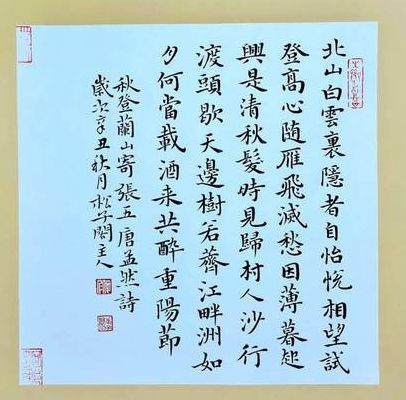 北山白雲裏隱者自怡悅相望試
登高心随雁飛滅愁因薄暮起
興是清秋髮時見歸村人沙行
渡頭歇天邊樹若薺江畔洲如
月何當載酒来共醉重陽節
秋登蘭山寄張五唐孟然詩
歲次辛丑秋月松子閣主人